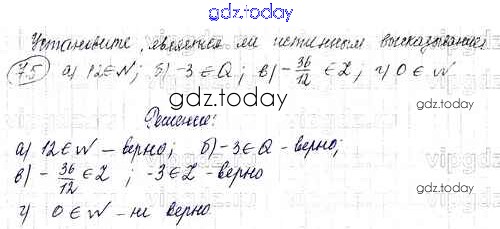 gdz.today
Установите, является ли истинным высказывание
7.5 а) 12∈N; б) -3∈Q; в) -36/12 ∈ Z; г) 0∈N
gdz.today
Решение:
а) 12∈N - верно; б) -3∈Q - верно;
в) -36/12 ∈ Z ; -3∈Z - верно
gdz.today
г) 0∈N - не верно